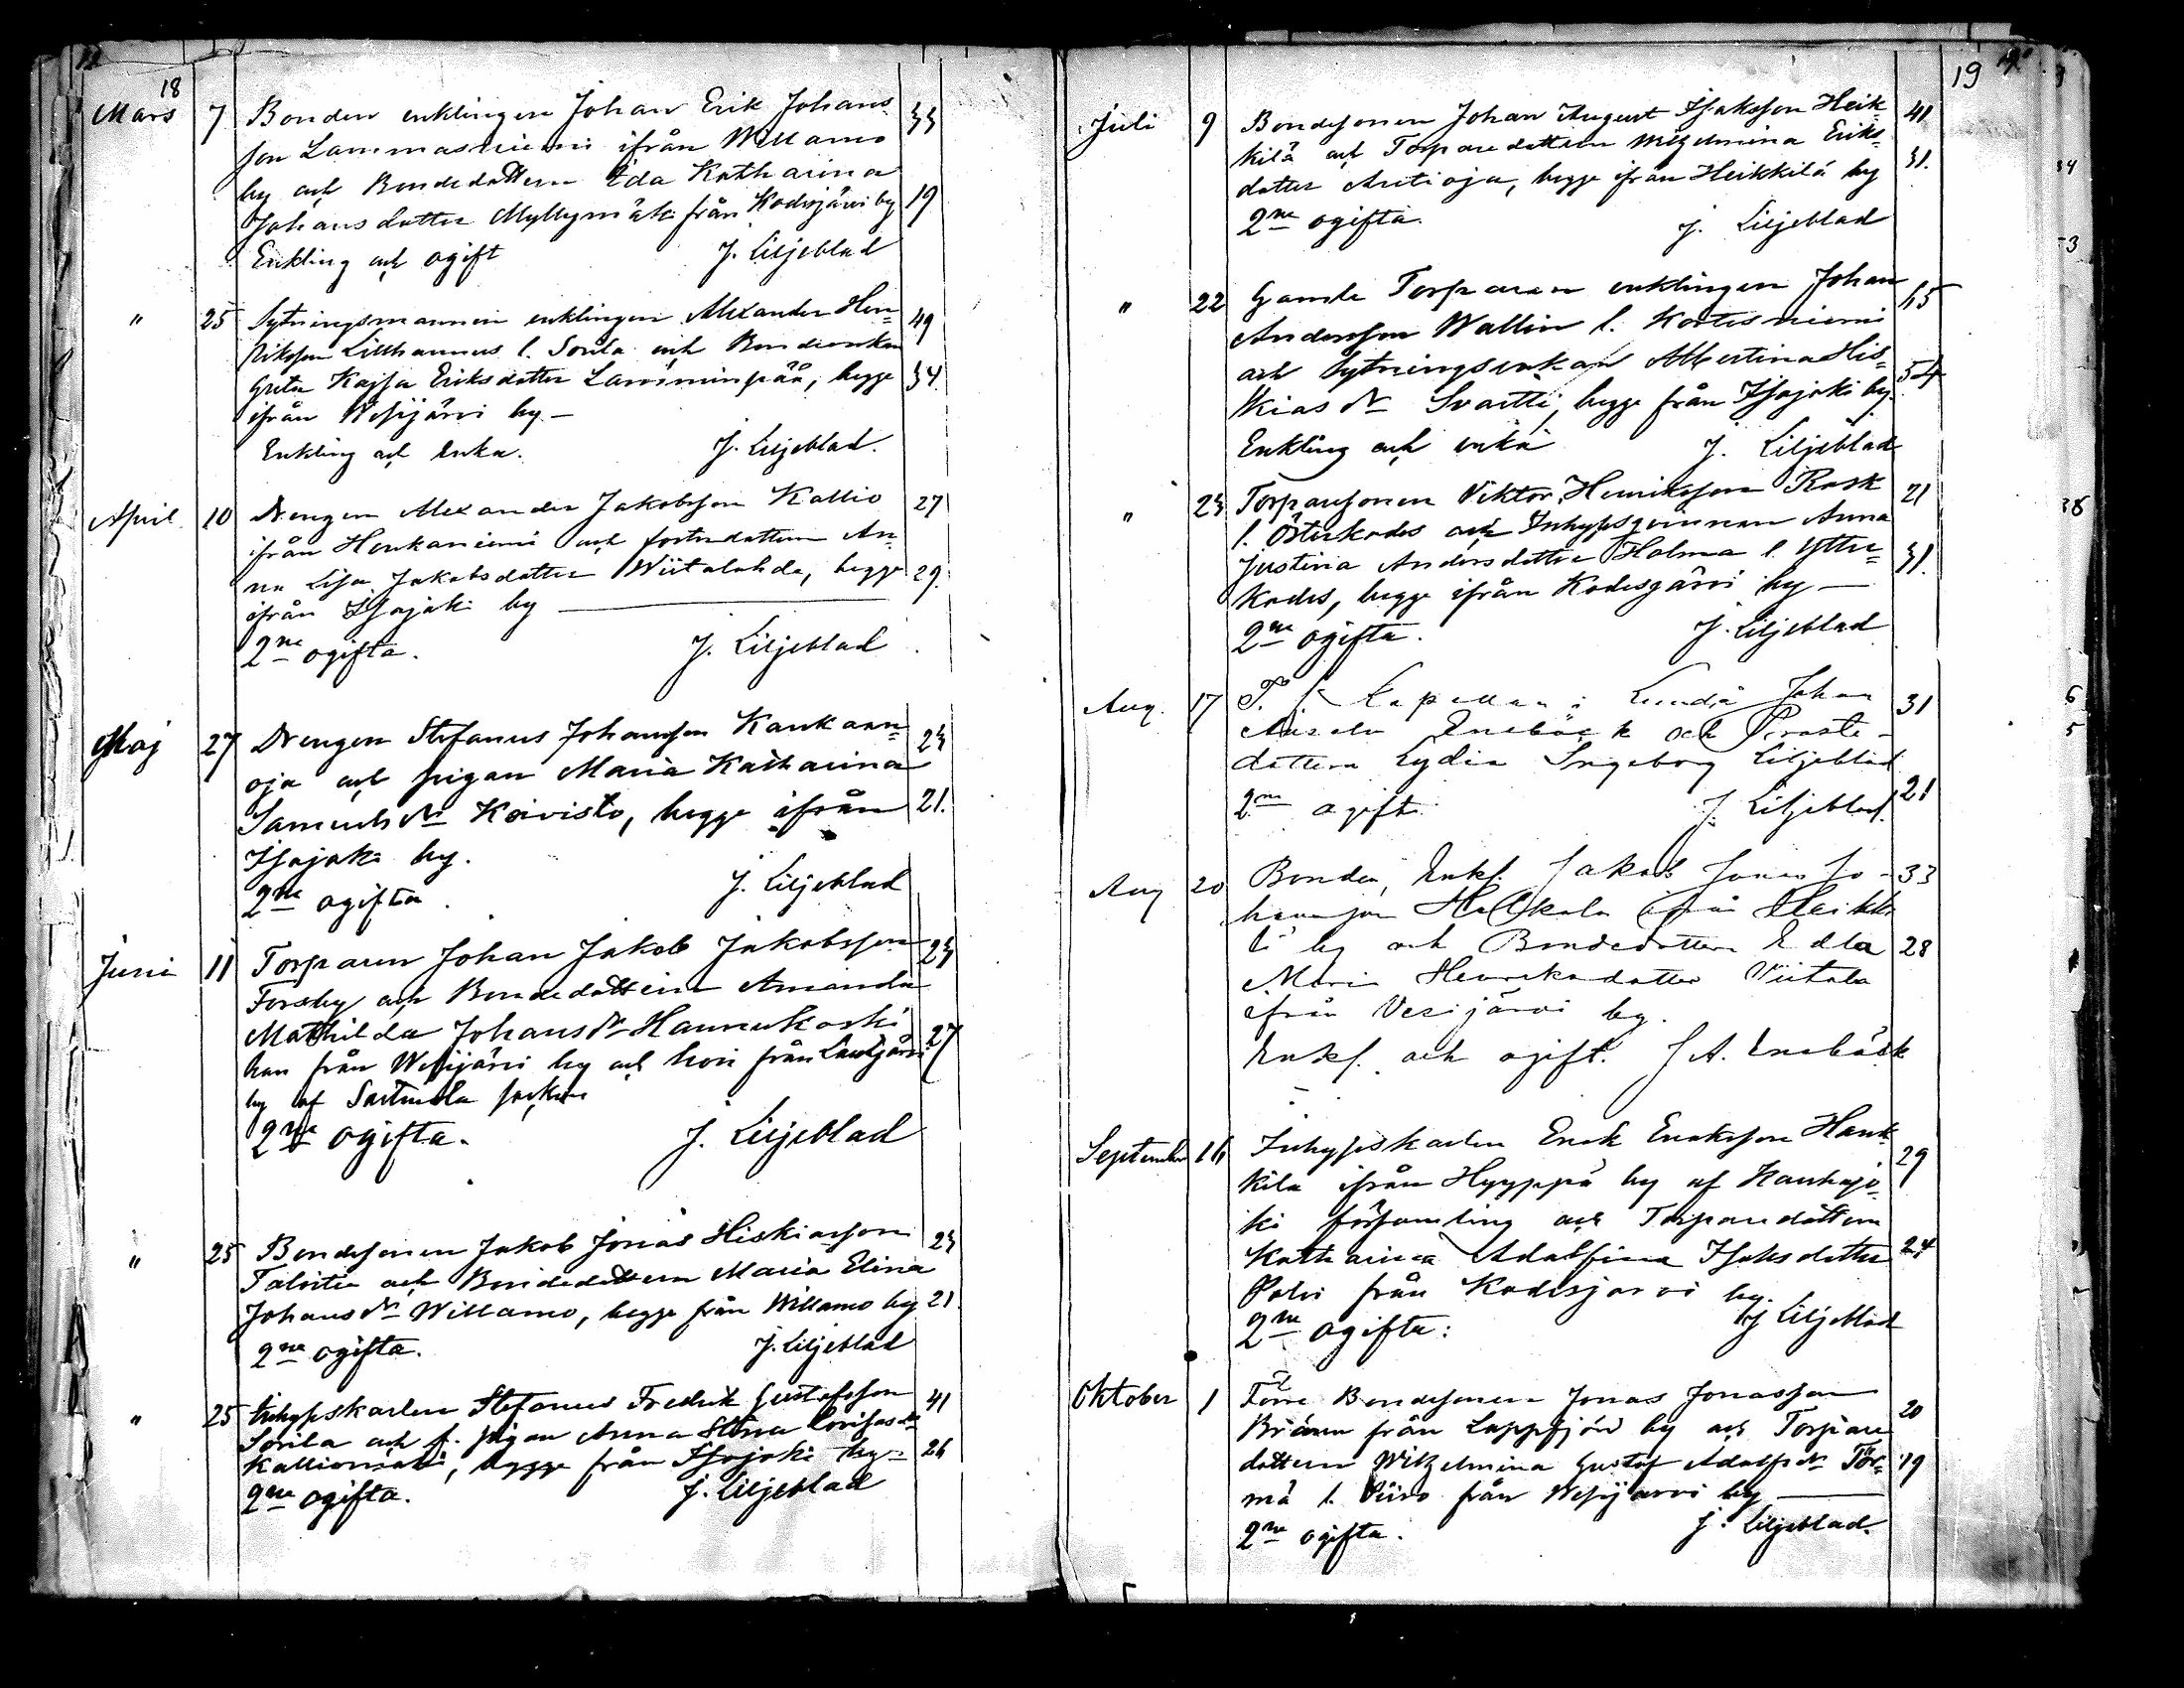 18
Mars 7 Bonden enklingen Johan Erik Johans 33
son Lammasniemi ifrån Willamo
by och Bondedottern Ida Katharina
Johansdotter Myllymäki från Kodisjärvi by 19
Enkling och ogift J. Liljeblad
" 25 Sytningsmannen enklingen Alexander Hen= 49
riksson Lillhannus l. Sorila och Bondeenkan
Greta Kajsa Eriksdotter Lamminpää, begge 34.
ifrån Wesijärvi by —
Enkling och enka. J. Liljeblad.
April 10 Drengen Alexander Jakobsson Kallio 27
ifrån Honkaniemi och dottern An=
na Lisa Jakobsdotter Wiitalahde, begge 29.
ifrån Isojoki by —
2ne ogifta. J. Liljeblad
Maj 27 Drengen Stefanus Johansson Kankaan= 23
oja och pigan Maria Katharina
Samuels dr Koivisto, begge ifrån 21.
Isojoki by.
2ne ogifta. J. Liljeblad
Juni 11 Torparen Johan Jakob Jakobsson 23
Forsby och Bondedottern Amanda
Mathilda Johans dr Hannukoski 27
han från Wesijärvi by och hon från Lautjärvi
by af Sastmola socken
2ne ogifta. J. Liljeblad
" 25 Bondesonen Jakob Jonas Hiskiasson 23
Talvitie och Bondedottern Maria Elina
Johans dr Willamo, begge från Willamo by 21
2ne ogifta. J. Liljeblad
" 25 Inhyseskarlen Stefanus Fredrik Gustafsson 41
Sorila och f. pigan Anna Stina
Kalliomäki, begge från Isojoki by 26
2ne ogifta. J. Liljeblad
19
Juli 9 Bondesonen Johan August Isaksson Heik= 41
kilä och Torparedottern Wilhelmina Eriks=
dotter Antioja, begge ifrån Heikkilä by 31.
2ne ogifta. J. Liljeblad
" 22 Gamle Torparen enklingen Johan 65
Andersson Wallin l. Kortesniemi
och Sytningsenkan Albertina His= 54
kias dr Svartti, begge från Isojoki by.
Enkling och enka J. Liljeblad
" 23 Torparesonen Viktor Henriksson Rosk 21
l. Österkodes och Inhysesqvinnan Anna
Justina Andersdotter Holma l. Ytter= 31.
kodis, begge ifrån Kodisjärvi by —
2ne ogifta. J. Liljeblad
Aug. 17 T. f. Kapellan i Johan 31
Enebäck och Proste-
dottern Lydia Ingeborg Liljeblad
2ne ogifta J. Liljeblad. 21
Aug 20 Bonden, Enkl. Jakob Jonas Jo- 33
hansson ifrån Heikki
lä by och Bondedottern Edla 28
Maria Henriksdotter Viitala
ifrån Vesijärvi by.
Enkl. och ogift. J A. Enebäck
September 16 Inhyseskarlen Erik Eriksson Hank= 29
kila ifrån Hyyppä by af Kauhajo=
ki församling och Torparedottern
Katharina Adolfina Isaksdotter 24
Palvi från Kodisjärvi by.
2ne ogifta: J Liljeblad
Oktober 1 Förre Bondesonen Jonas Jonasson 20
Brännn från Lappfjärd by och Torpare
dottern Wilhelmina Gustaf Adolfs dr Tör= 19
mä l. Viiro från Wesijärvi by —
2ne ogifta. J. Liljeblad.